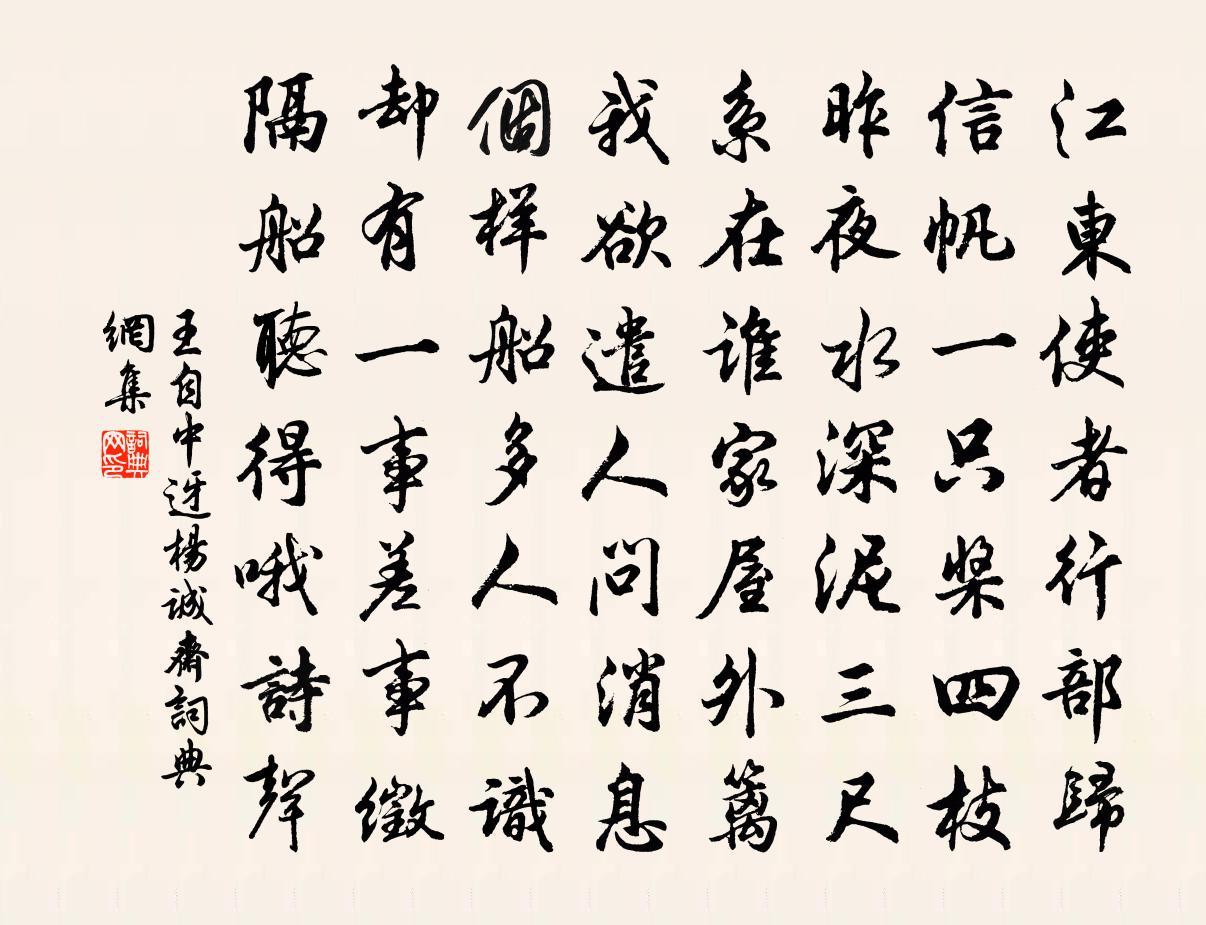 江東使者行部歸
信帆一只槳四枝
昨夜水深泥三尺
系在誰家屋外籬
我欲遣人問消息
個樣船多人不識
却有一事差事徵
隔船聽得哦詩聲
王自中迓楊誠齋詞典
網集
詞典網印